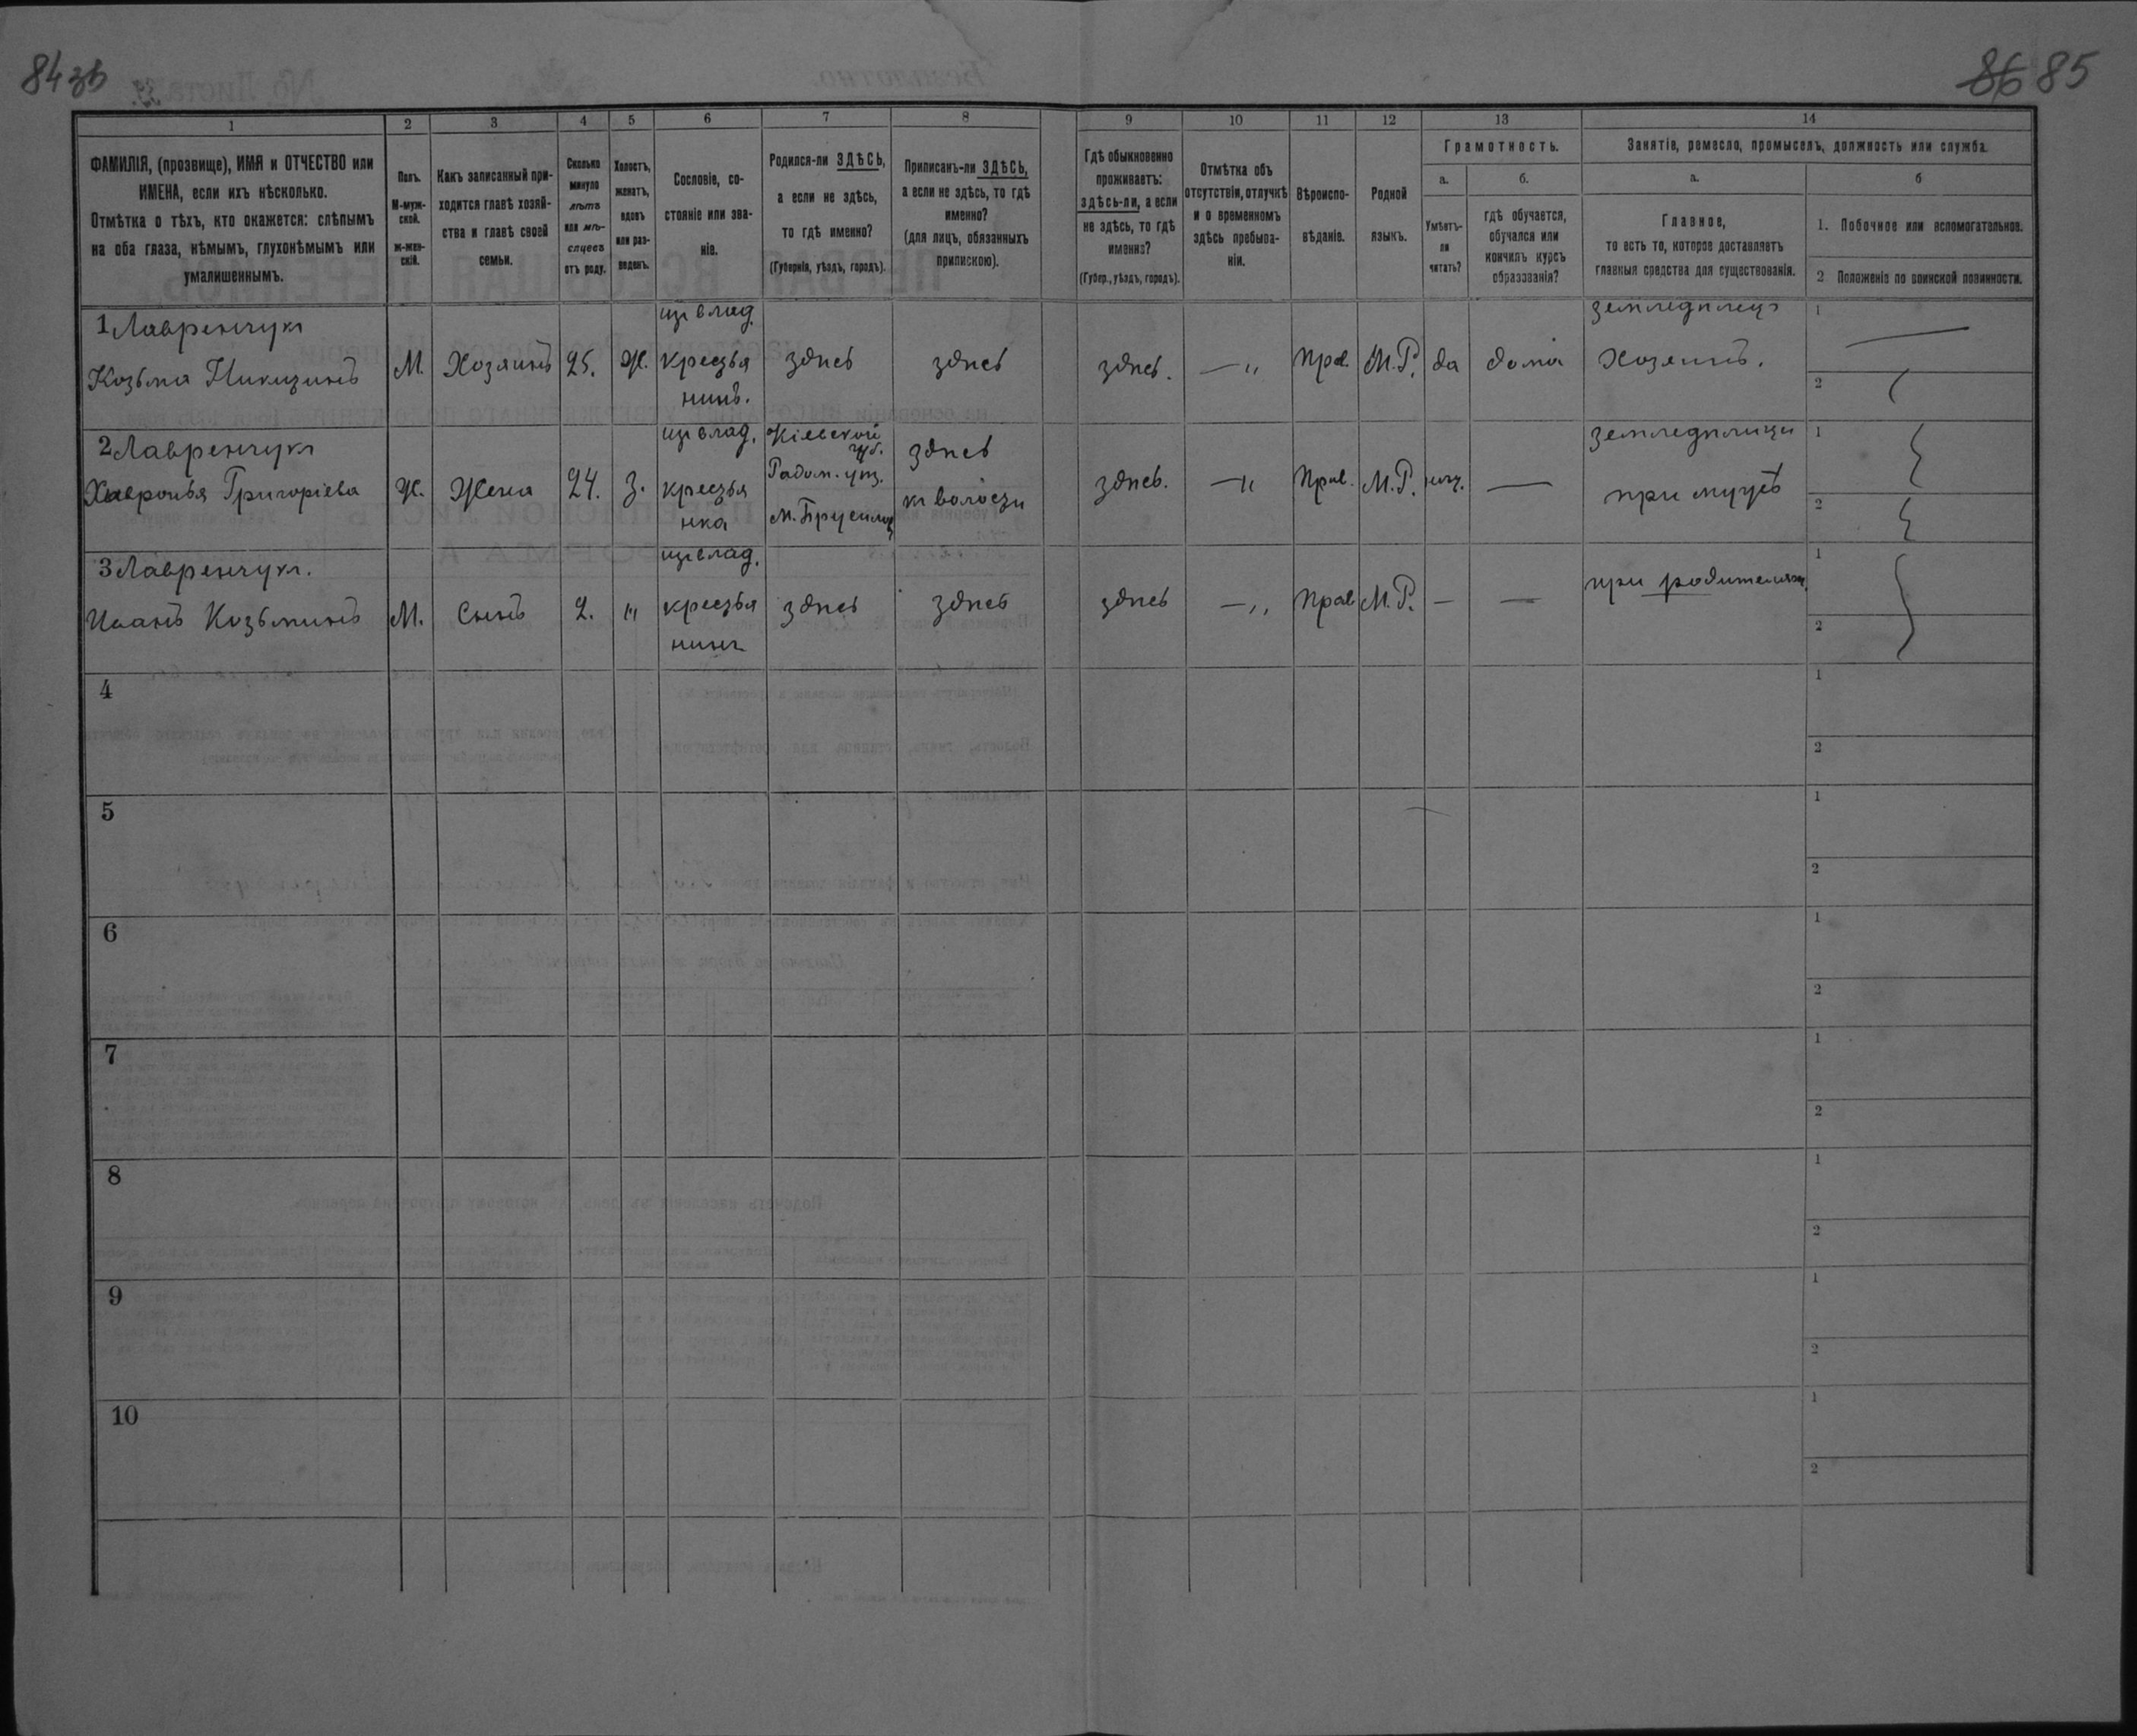 84 зв
86 85
1
2
3
4
5
6
7
8
9
10
11
12
13
14
ФАМИЛІЯ, (прозвище), ИМЯ и ОТЧЕСТВО или
ИМЕНА, если ихъ нѣсколько.
Отмѣтка о тѣхъ, кто окажется: слѣпымъ
на оба глаза, нѣмымъ, глухонѣмымъ или
умалишеннымъ.
Полъ.
М-муж-
ской.
ж-жен-
скій.
Какъ записанный при-
ходится главѣ хозяй-
ства и главѣ своей
семьи.
Сколько
минуло
лѣтъ
или мѣ-
сяцевъ
отъ роду.
Холостъ,
женатъ,
вдовъ
или раз-
веденъ.
Сословіе, со-
стояніе или зва-
ніе.
Родился-ли ЗДѢСЬ,
а если не здѣсь,
то гдѣ именно?
(Губернія, уѣздъ, городъ).
Приписанъ-ли ЗДѢСЬ,
а если не здѣсь, то гдѣ
именно?
(для лицъ, обязанныхъ
припискою).
Гдѣ обыкновенно
проживаетъ:
здѣсь-ли, а если
не здѣсь, то гдѣ
именно?
(Губер., уѣздъ, городъ).
Отмѣтка объ
отсутствіи, отлучкѣ
и о временномъ
здѣсь пребыва-
ніи.
Вѣроиспо-
вѣданіе.
Родной
языкъ.
Грамотность.
а.
б.
Умѣетъ-
ли
читать?
гдѣ обучается,
обучался или
кончилъ курсъ
образованія?
Занятіе, ремесло, промыселъ, должность или служба.
а.
б
Главное,
то есть то, которое доставляетъ
главныя средства для существованія.
1. Побочное или вспомогательное.
2 Положеніе по воинской повинности.
1 Лавренчукъ
Козьма Никитинъ
М.
Хозяинъ
25.
Ж.
изъ влад.
крестья
нинъ.
здѣсь
здѣсь
здѣсь.
— "
Прав.
М.Р.
да
дома
земледѣлецъ
Хозяинъ.
1
2
2 Лавренчукъ
Хавронья Григоріева
Ж.
Жена
24.
З.
изъ влад.
крестья
нка
Кіевской
губ.
Радом. уѣз.
м. Брусилов
здѣсь
въ волости
здѣсь.
— "
Прав.
М.Р.
нѣт.
—
земледѣлица
при мужѣ
1
2
3 Лавренчукъ.
Иванъ Козьминъ
М.
Сынъ
2.
"
изъ влад.
крестья
нинъ
здѣсь
здѣсь
здѣсь
— "
Прав
М.Р.
—
—
при родителяхъ
1
2
4
1
2
5
1
2
6
1
2
7
1
2
8
1
2
9
1
2
10
1
2